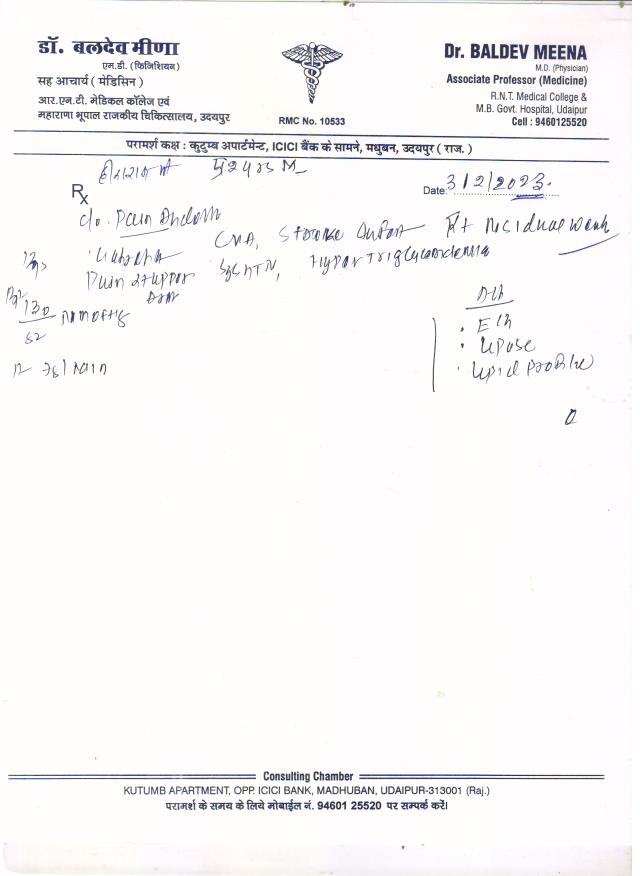 डॉ. बलदेव मीणा
एम.डी. (फिजिशियन)
सह आचार्य ( मेडिसिन )
आर.एन.टी. मेडिकल कॉलेज एवं
महाराणा भूपाल राजकीय चिकित्सालय, उदयपुर
RMC No. 10533
Dr. BALDEV MEENA
M.D. (Physician)
Associate Professor (Medicine)
R.N.T. Medical College &
M.B. Govt. Hospital, Udaipur
Cell : 9460125520
परामर्श कक्ष : कुटुम्ब अपार्टमेन्ट, ICICI बैंक के सामने, मधुबन, उदयपुर ( राज. )
Rx
Date: 3/2/2023
c/o. Pain
CVA, Stroke Rt Residual weak
Pain upper Sys HTN, Hyper Triglyceridemia
Arm
130
82
Lipid profile
Consulting Chamber
KUTUMB APARTMENT, OPP. ICICI BANK, MADHUBAN, UDAIPUR-313001 (Raj.)
परामर्श के समय के लिये मोबाईल नं. 94601 25520 पर सम्पर्क करें।